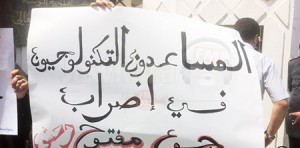 المساعدون التكنولوجيون
في إضراب
جوع مفتوح